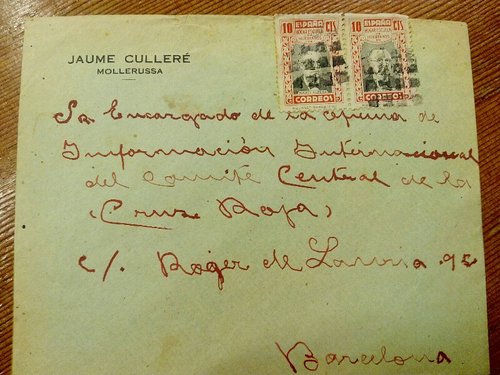 JAUME CULLERÉ
MOLLERUSSA
10 ESPAÑA CTS
HOGAR ESCUELA
CORREOS
10 ESPAÑA CTS
HOGAR ESCUELA
CORREOS
Sr Encargado de la Oficina de
Información Internacional
del Comité Central de la
(Cruz Roja)
c/. Roger de Lauria 95
Barcelona